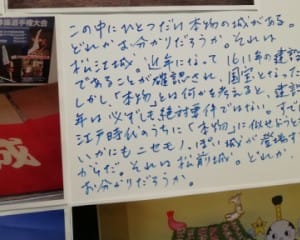 選手権大会
この中にひとつだけ本物の城がある。
どれがお分かりだろうか。それは
松江城。近年になって1611年の建設
であることが確認され、国宝となった
しかし「本物」とは何かを考えると、建設
年は必ずしも絶対条件ではない。すで
江戸時代のうちに「本物」に似せようと
いかにもニセモノっぽい城が登場す
からだ。それは松前城。どれが
お分かりだろうか。
城